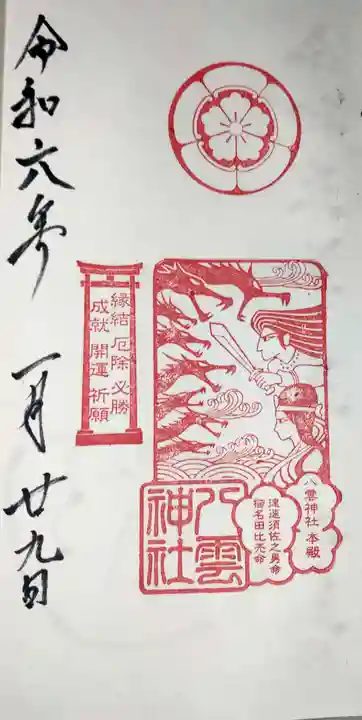 令和六年 一月廿九日
縁結 厄除 必勝
成就 開運 祈願
八雲神社 本殿
速須佐之男命
稲名田比売命
八雲
神社